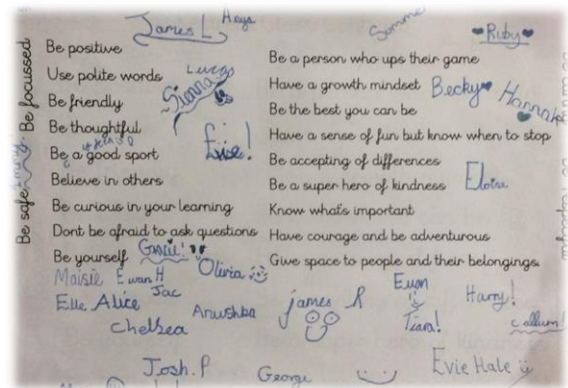 James L
Summe
Ruby
Be focussed
Be safe
Be positive
Use polite words
Be friendly
Be thoughtful
Be a good sport
Believe in others
Be curious in your learning
Dont be afraid to ask questions
Be yourself
Be a person who ups their game
Have a growth mindset
Be the best you can be
Have a sense of fun but know when to stop
Be accepting of differences
Be a super hero of kindness
Know what's important
Have courage and be adventurous
Give space to people and their belongings.
Lucas
Sienna
Becky
Hannah
Eloise
Gracie!
Olivia
Maisie
Ewan H
Jac
Elle
Alice
Anushka
Chelsea
james R
Euan
Tiara!
Harry!
Callum!
Josh.P
George
Evie Hale